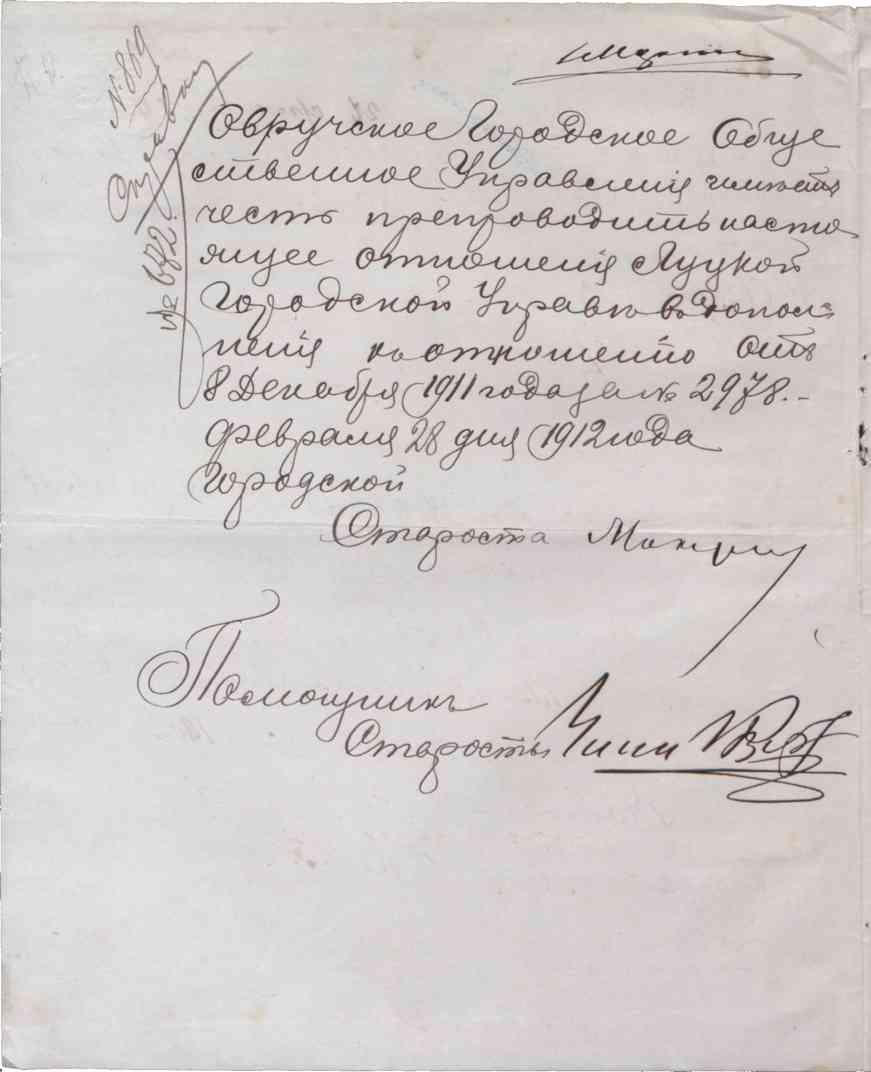 № 869
№ 682.
Овручское Городское Обще
ственное Управленія имѣетъ
честь препроводить насто
ящее отношенія Луцкой
Городской Управѣ въ допол=
ненія къ отношенію отъ
8 Декабря 1911 года за № 2978.-
февраля 28 дня 1912 года
Городской
Староста
Помощникъ
Старосты